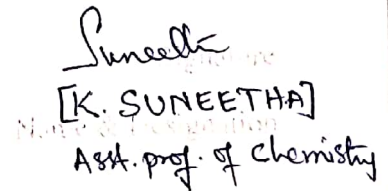 Suneetha
[K. SUNEETHA]
Asst. prof. of chemistry